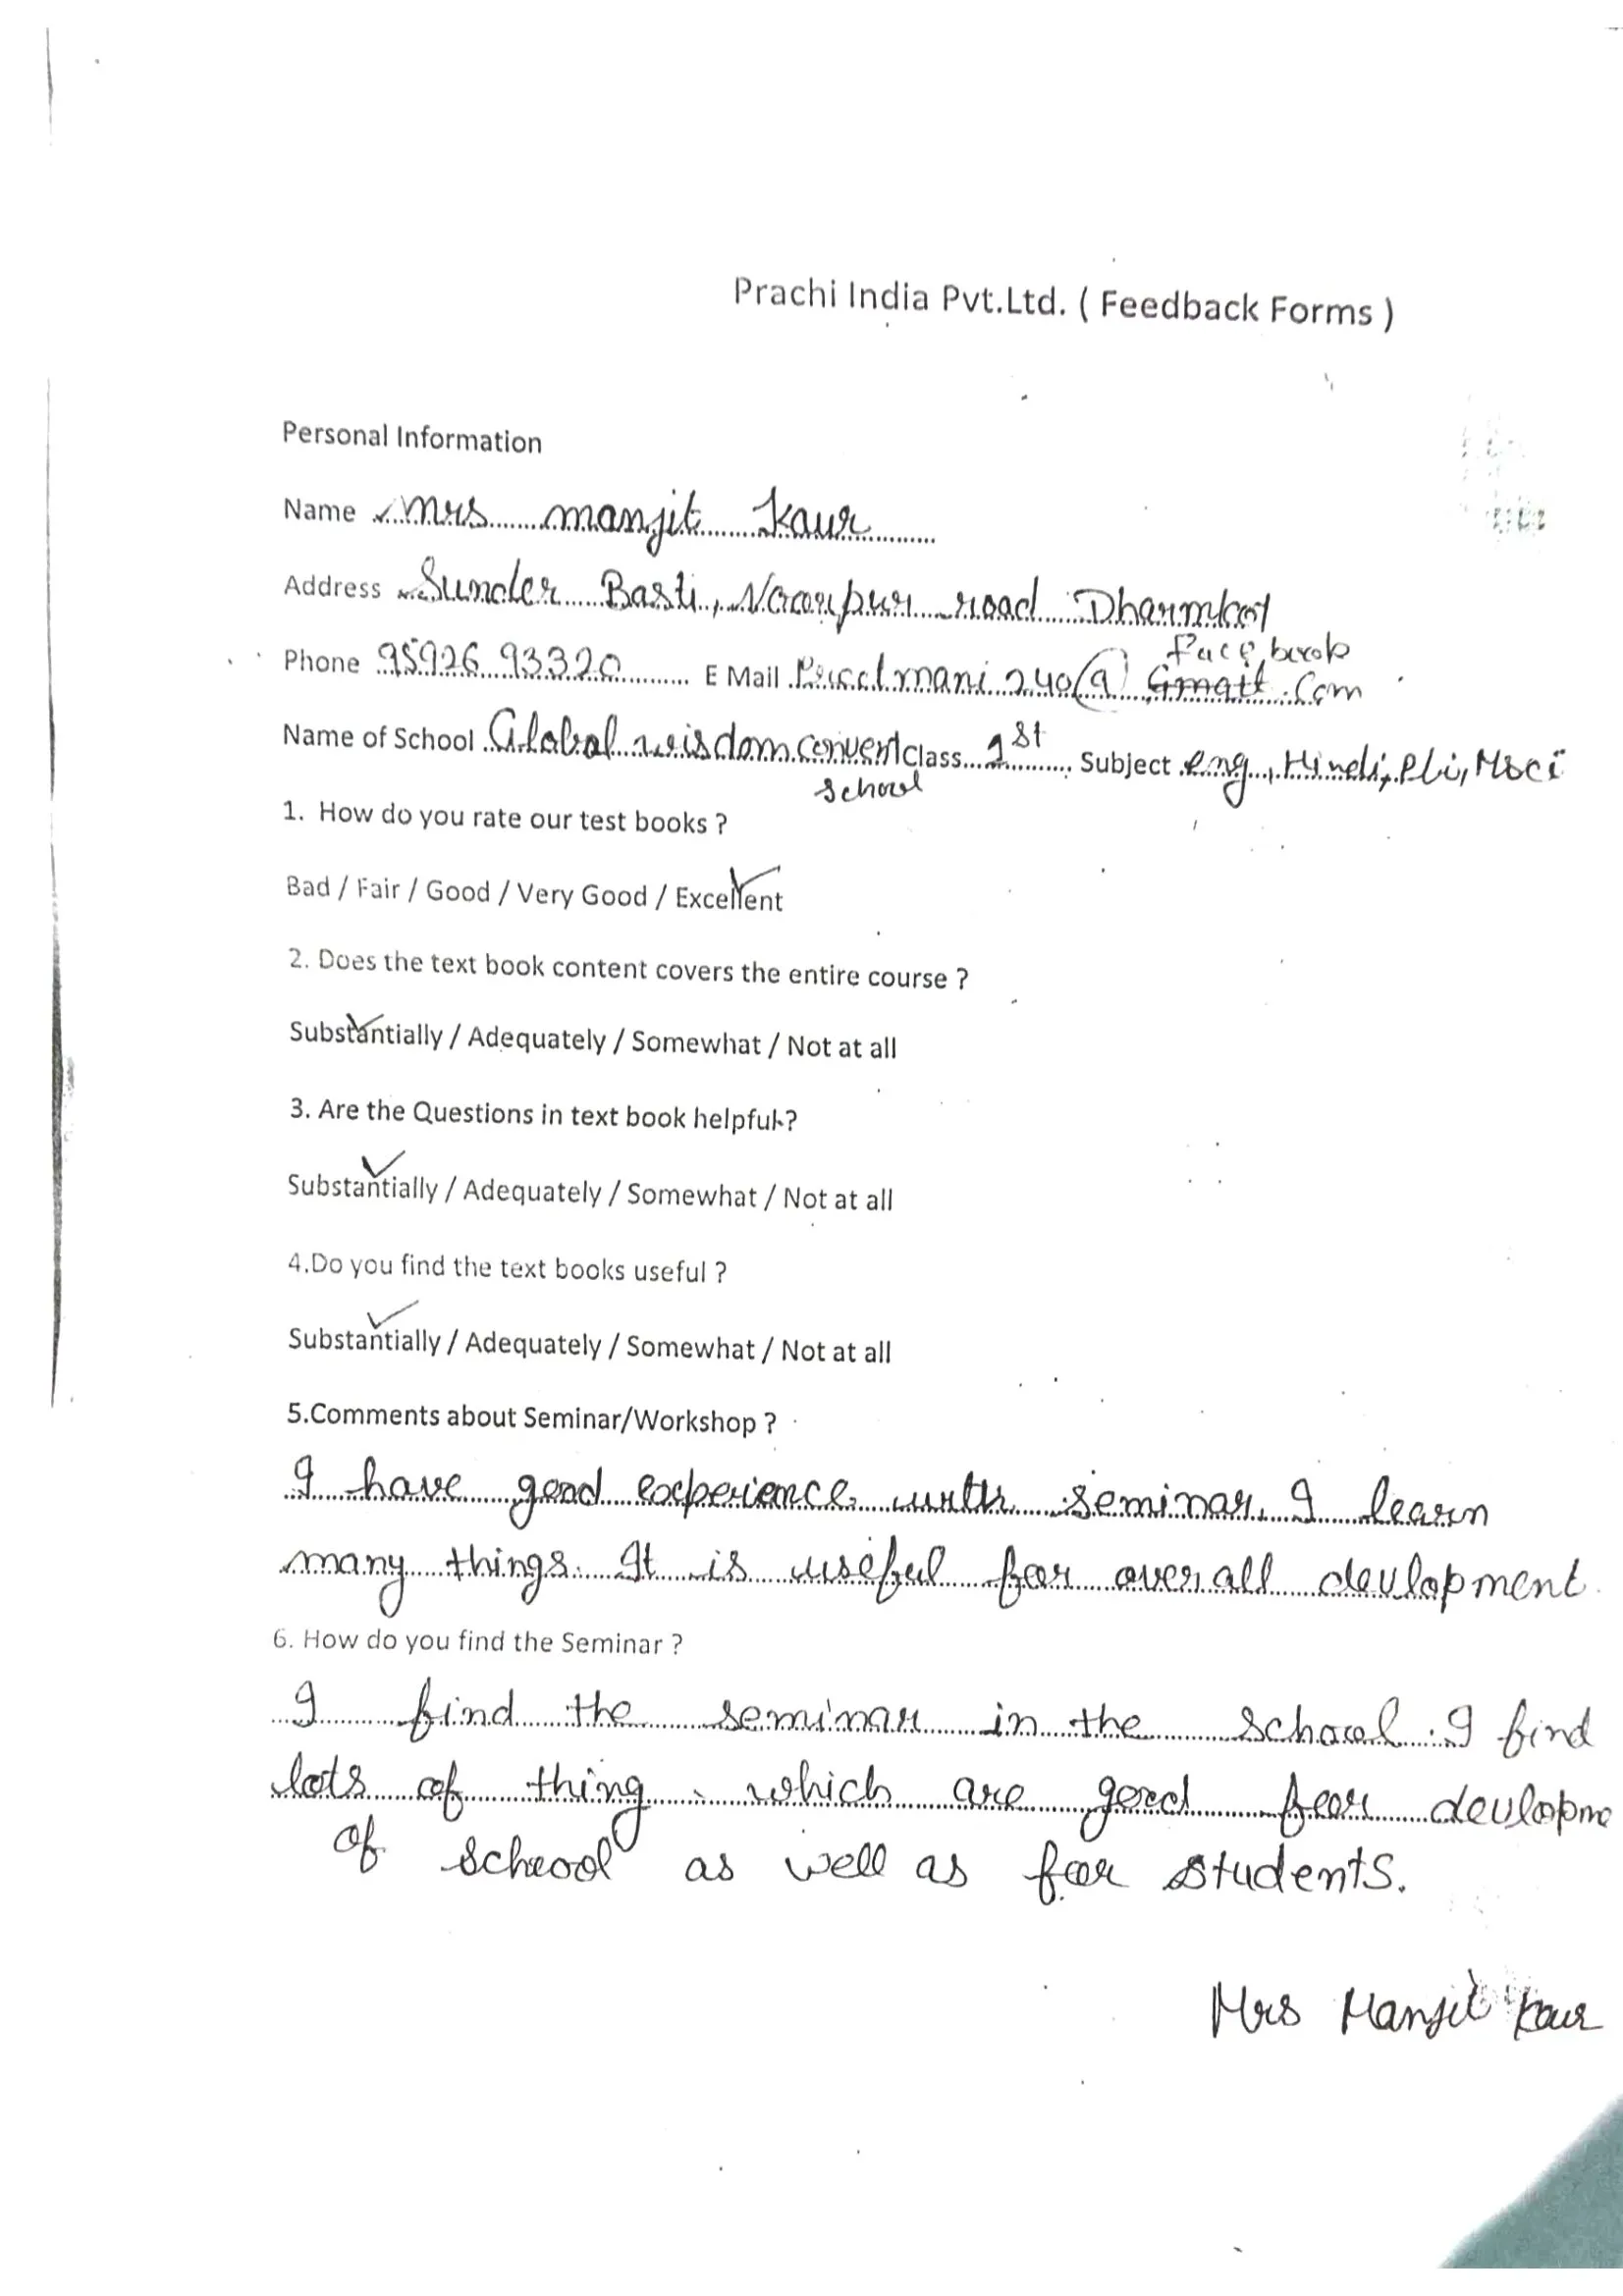 Prachi India Pvt.Ltd. ( Feedback Forms )
Personal Information
Name Mrs manjit Kaur
Address Sunder Basti, Noorpur road Dharmkot
Phone 95926 93320 E Mail @ Gmail .Com
Face book
Name of School Global wisdom convent Class 1st Subject eng, Hindi, Pbi, Msci
School
1. How do you rate our test books ?
Bad / Fair / Good / Very Good / Excellent
2. Does the text book content covers the entire course ?
Substantially / Adequately / Somewhat / Not at all
3. Are the Questions in text book helpful?
Substantially / Adequately / Somewhat / Not at all
4.Do you find the text books useful ?
Substantially / Adequately / Somewhat / Not at all
5.Comments about Seminar/Workshop ?
I have good experience with seminar. I learn
many things. It is useful for over all devlopment.
6. How do you find the Seminar ?
I find the seminar in the school. I find
lots of thing which are good for devlopme
of school as well as for students.
Mrs Manjit Kaur